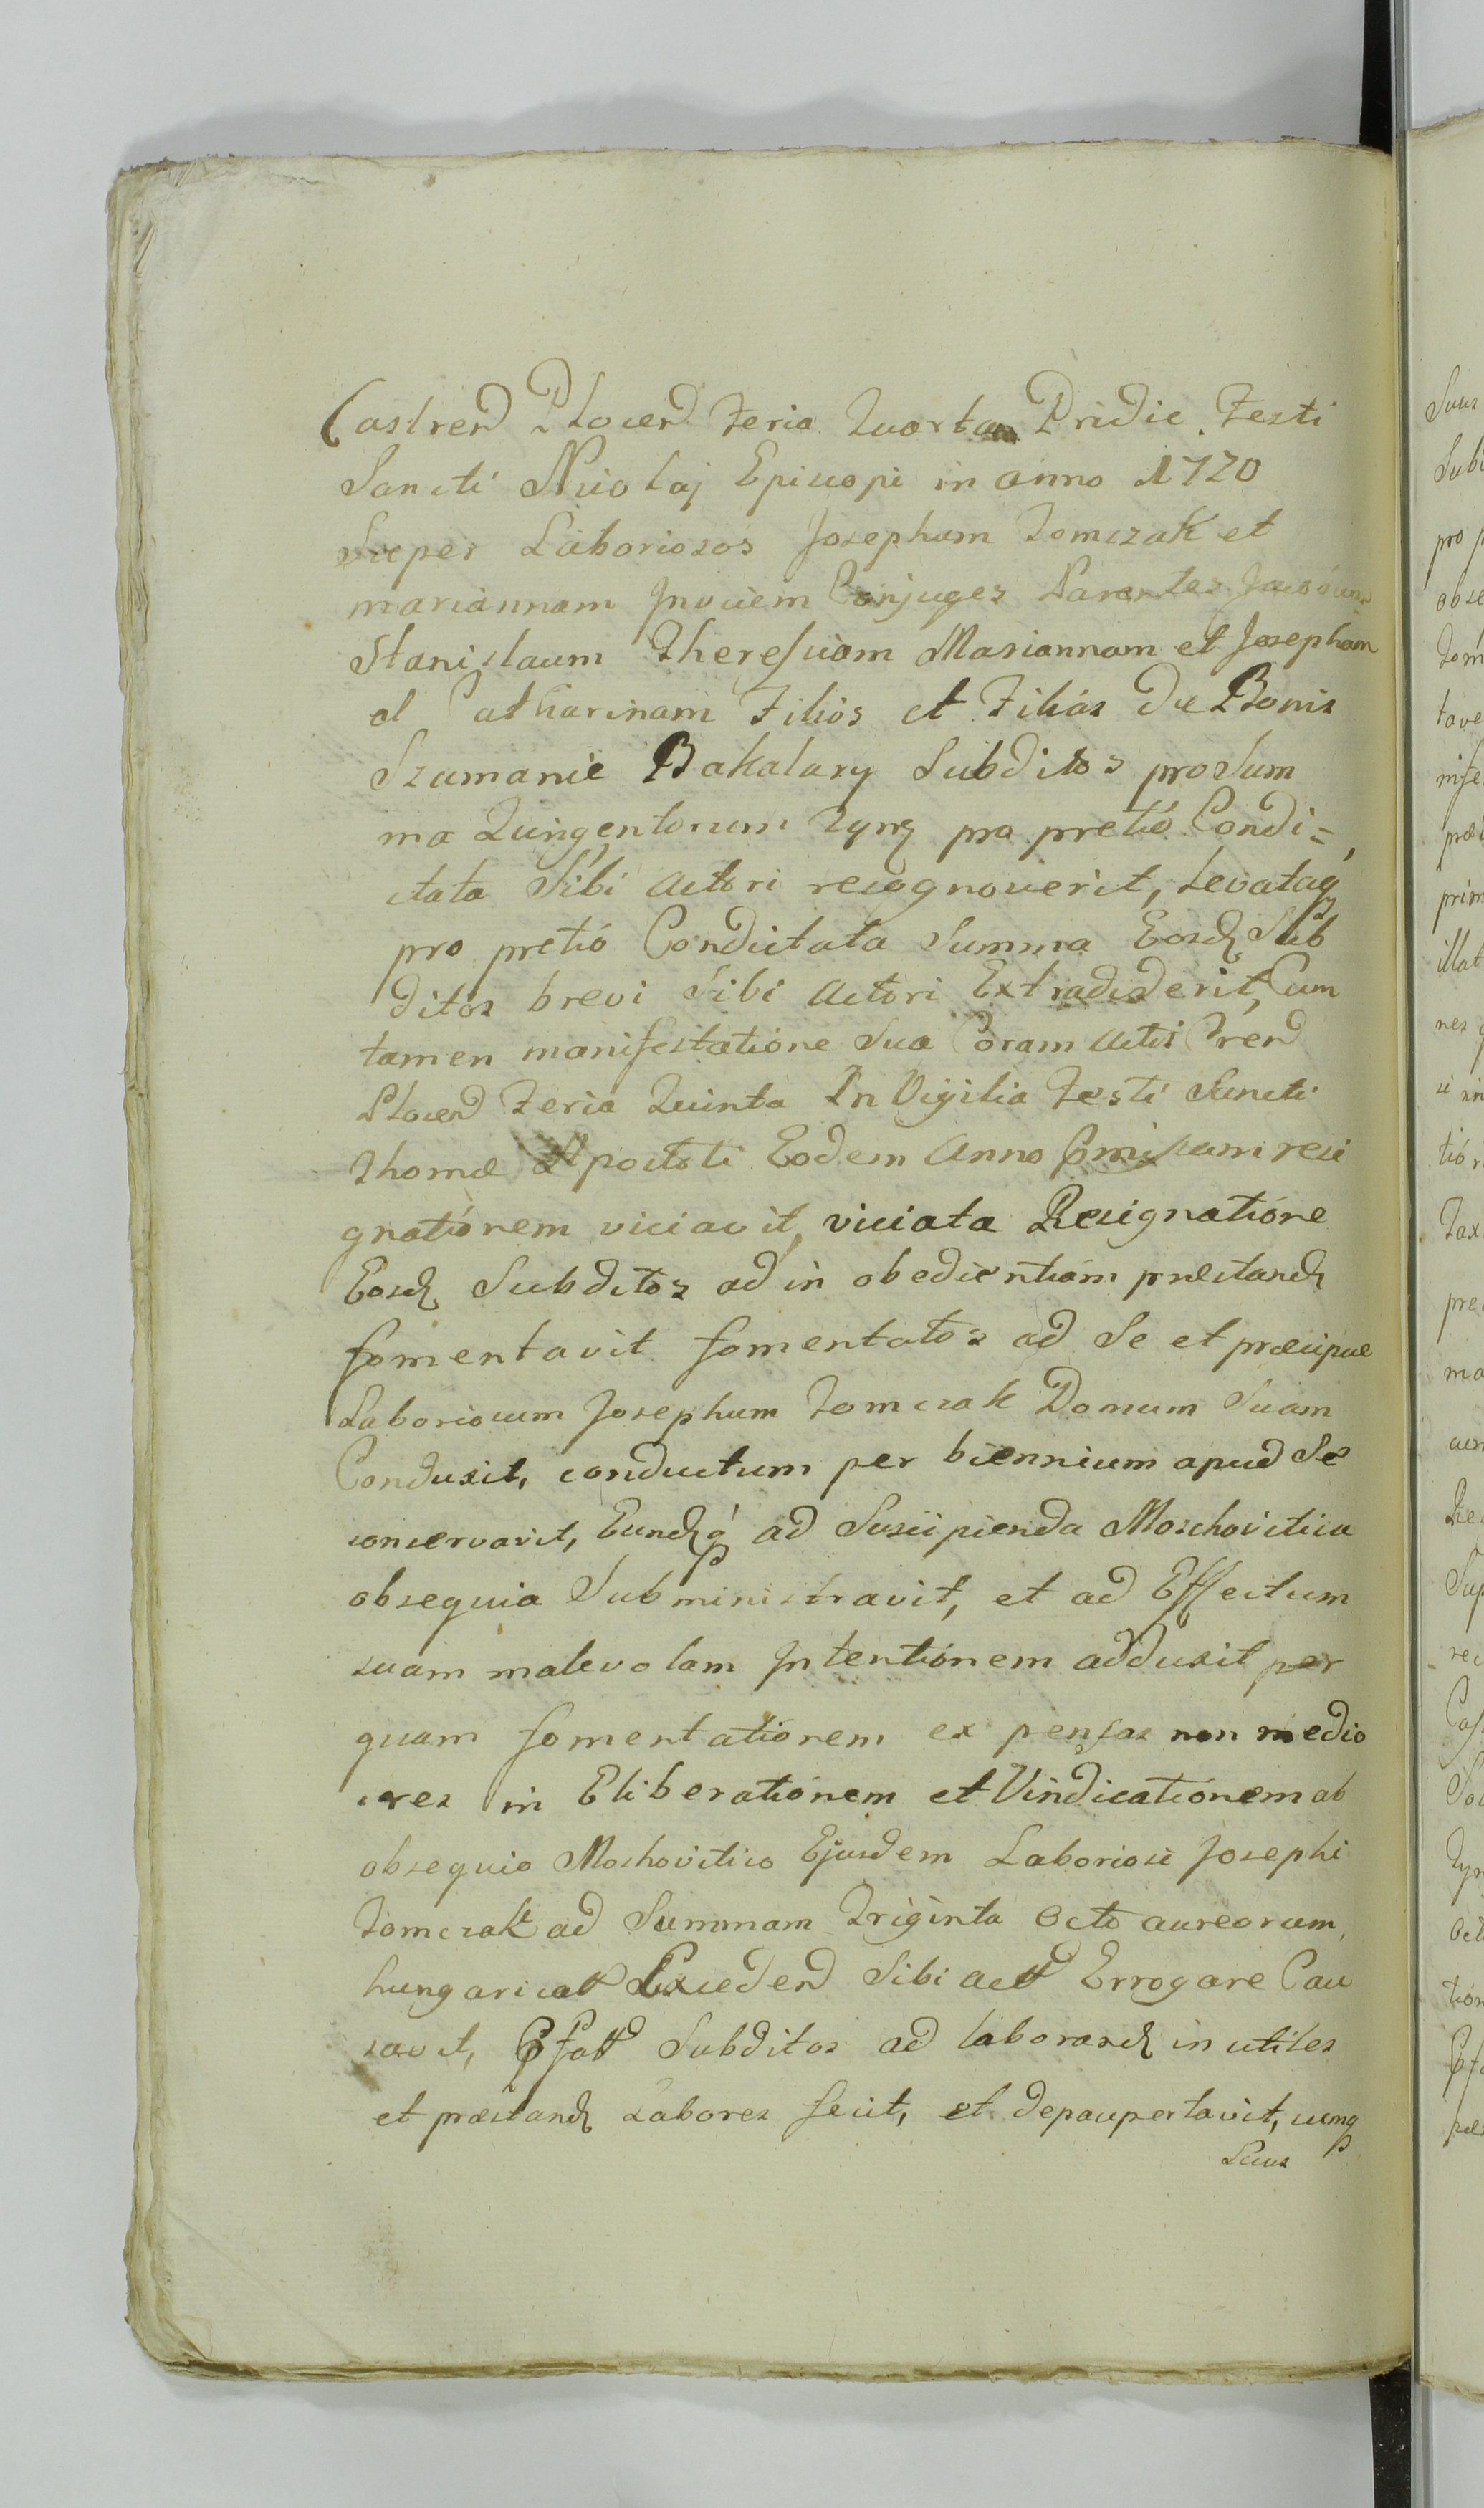 Castren Plocen Feria Quarta Pridie Festi
Sancti Nicolaj Episcopi in anno 1720
Super Laboriosos Josephum Tomczak et
mariannam Invicem Conjuges Parentes Jacobum
Stanislaum Theresiam Mariannam et Josepham
et Catharinam Filios et Filias de Bonis
Szumanie Bakalary Subditos pro Sum
ma Quingentorum Tynf pro pretio Condi=
ctata Sibi Actori recognoverit, Levataq
pro pretio Condictata Summa Eosd Sub
ditos brevi Sibi Actori Extradiderit, Cum
tamen manifestatione Sua Coram Actis Cren
Plocen Feria Quinta In Vigilia Festi Sancti
Thomæ Apostoli Eodem Anno resi
gnationem viciavit, viciata Resignatione
Eosd Subditos ad in obedientiam præstand
fomentavit fomentatos ad Se et præcipue
Laboriosum Josephum Tomczak Domum Suam
Conduxit, conductum per biennium apud Se
conservavit, Eundq ad Suscipienda Moschovitica
obsequia Subministravit, et ad Effectum
suam malevolam Intentionem adduxit per
quam fomentationem expensas non medio
cres in Eliberationem et Vindicationem ab
obsequio Moschovitico Ejusdem Laboriosi Josephi
Tomczak ad Summam Triginta Octo aureorum
hungarical Exceden Sibi Act Errogare Cau
savit, Pfat Subditos ad laborand inutiles
et præstand Labores fecit, et depaupertavit, cumq
Suus